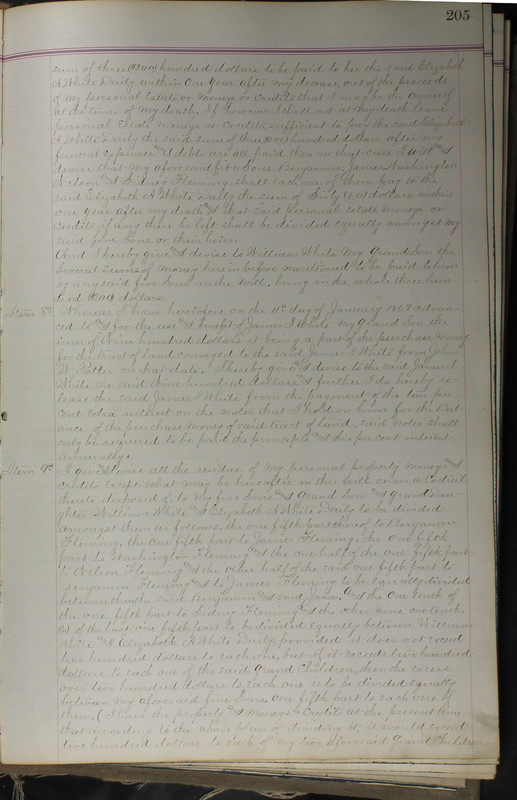 205
sum of three ($300) hundred dollars to be paid to her the said Elizabeth
A White Daily within one year after my decease, out of the proceeds
of my personal Estate or moneys or Credits that I may be the owner of
at the time of my death. If however I shall not at my death leave
personal Estate moneys or Credits sufficient to pay the said Elizabeth
A White Daily the said sum of three hundred dollars after my
funeral expenses & debts are all paid then in that case I will &
devise that my aforesaid five Sons Benjamin, James, Washington
Nelson & Sidney Fleming, shall each one of them pay to the
said Elizabeth A White Daily the sum of Sixty dollars within
one year after my death & that said personal estate moneys or
Credits if any there be left shall be divided equally amongst my
said five Sons or their heirs.
And I hereby give & devise to William White My Grand Son the
several sums of money herein before mentioned to be paid to him
by my said five Sons in this Will, being in the whole three hun-
dred dollars
Item 8th Whereas I have heretofore on the 11th day of January 1867 advan-
ced to & for the use & benefit of James I White my Grand Son the
sum of Nine hundred dollars it being a part of the purchase money
for the tract of land conveyed to the said James I White from John
W. Potter on that date. I hereby give & devise to the said James I
White the said Nine hundred dollars & further I do hereby re
lease the said James I White from the payment of the two per-
cent extra interest on the notes that I hold on him for the Bal-
ance of the purchase money of said tract of land, said notes shall
only be required to be paid the principle & six per cent interest
annually.
Item 9th I give & devise all the residue of my personal property moneys &
credits except what may be hereafter in this will or in a Codicil
thereto disposed of to My five Sons & Grand Son & Grand Daugh-
ghter William White & Elizabeth A White Daily to be divided
amongst them as follows, the one fifth part thereof to Benjamin
Fleming, the one fifth part to James Fleming, the one fifth
part to Washington Fleming & the one half of the one fifth part
to Nelson Fleming & the other half of the said one fifth part to
Benjamin Fleming & to James Fleming to be equally divided
between them the said Benjamin & said James & the One tenth of
the one fifth part to Sidney Fleming & the other nine one tenths
of the last one fifth part to be divided equally between William
White & Elizabeth A White Daily, provided it does not exceed
two hundred dollars to each one but if it exceeds two hundred
dollars to each one of the said Grand Children, then the excess
over two hundred dollars to each one is to be divided equally
between my aforesaid five Sons, one fifth part to each one of
them. (I have the property & Moneys & Credits at the present time
that according to the above plan of dividing it, it would exceed
two hundred dollars to each of my two aforesaid Grand Children